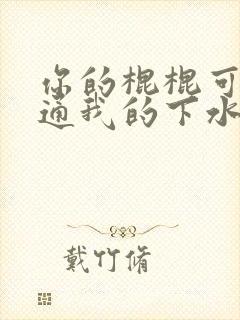 你的棍棍可
通我的下水
戴竹脩